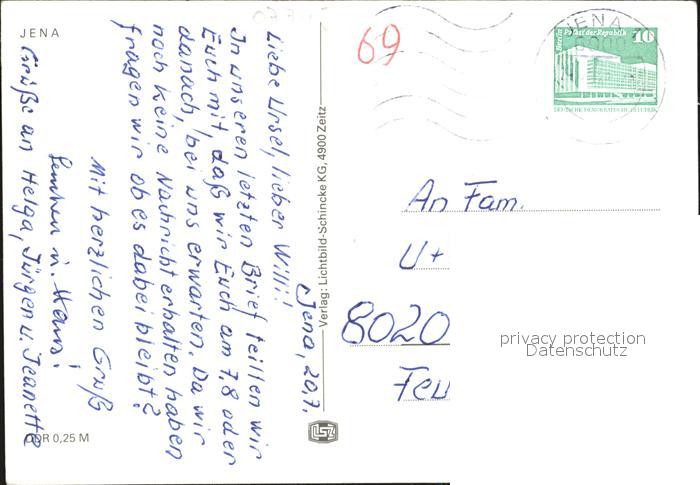 JENA
Jena, 20.7.
Liebe Ursel, lieber Willi!
In unseren letzten Brief teillen wir
Euch mit, daß wir Euch am 7.8 oder
danach, bei uns erwarten. Da wir
noch keine Nachricht erhalten haben
fragen wir ob es dabei bleibt?
Mit herzlichen Gruß
u.
Grüße an Helga, Jürgen u. Jeanette
DDR 0,25 M
Verlag: Lichtbild-Schincke KG, 4900 Zeitz
69
JENA
Palast der Republik
10
DEUTSCHE DEMOKRATISCHE REPUBLIK
An Fam.
U+
8020
privacy protection
Datenschutz